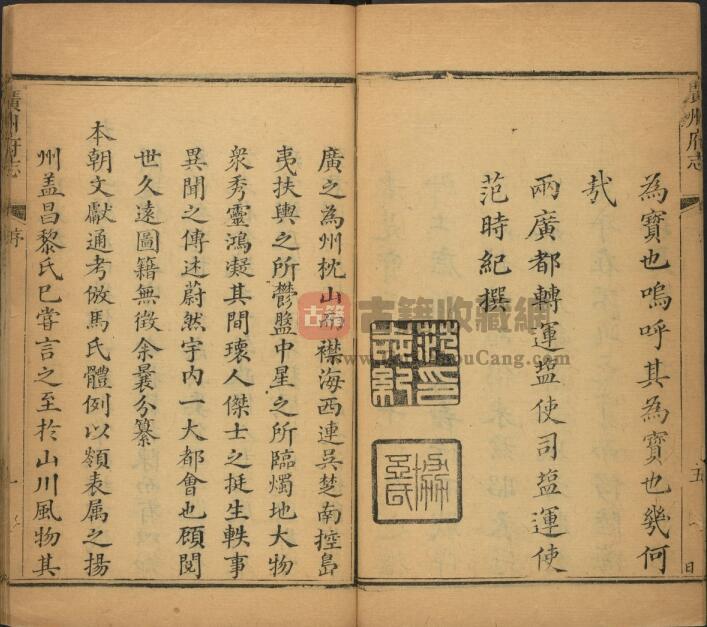 廣州府志
五
為寶也嗚呼其為寶也幾何
㢤
兩廣都轉運塩使司塩運使
范時紀撰
廣之為州枕山而襟海西連吳楚南控島
夷扶輿之所鬱盤中星之所臨燭地大物
衆秀靈鴻凝其間瓌人傑士之挺生軼事
異聞之傳述蔚然宇内一大都會也顧閱
世久遠圖籍無徵余曩分纂
本朝文獻通考倣馬氏體例以領表属之揚
州盖昌黎氏已嘗言之至於山川風物其
廣州府志
序
一
古籍
古籍收藏網